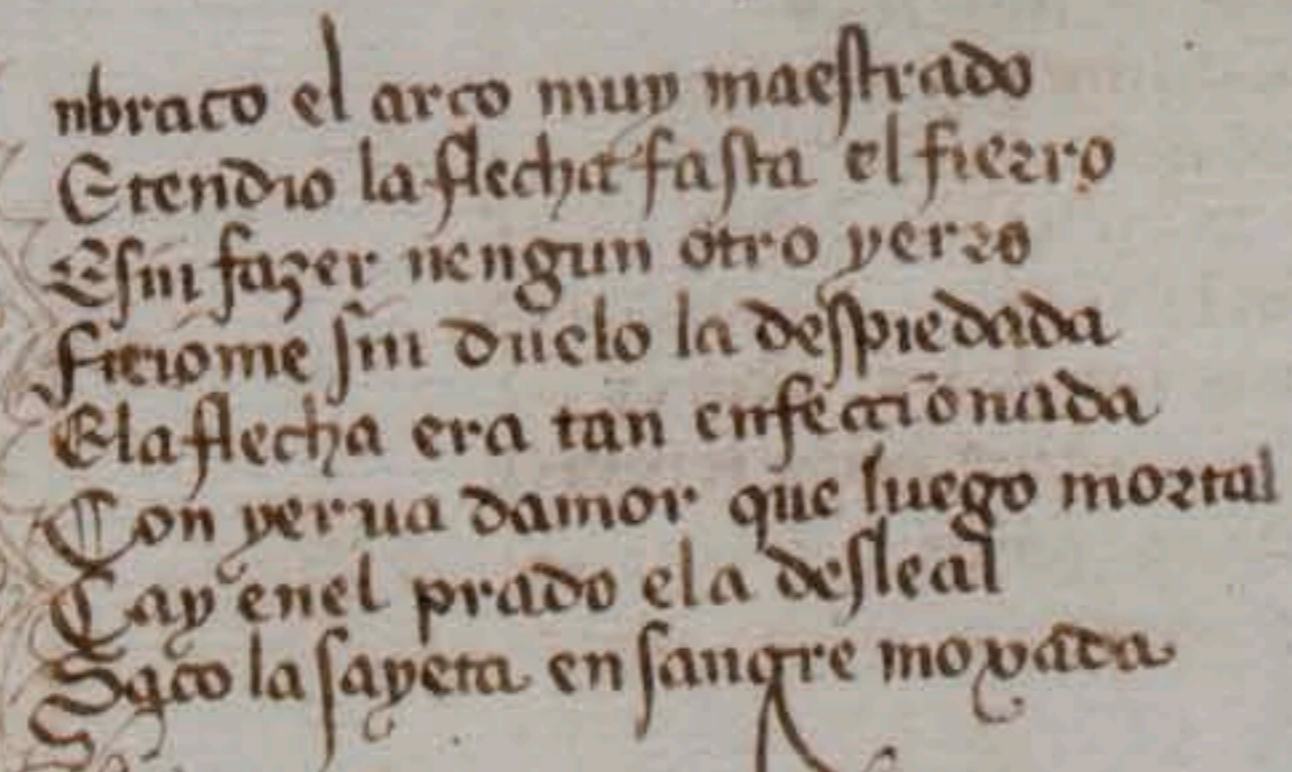 nbraco el arco muy maestrado
E tendio la flecha fasta el fierro
E sin fazer nengun otro yerro
firiome sin duelo la despiedada
E la flecha era tan enfeccionada
Con yerua damor que luego mortal
Cay enel prado e la desleal
Saco la sayeta en sangre moxada